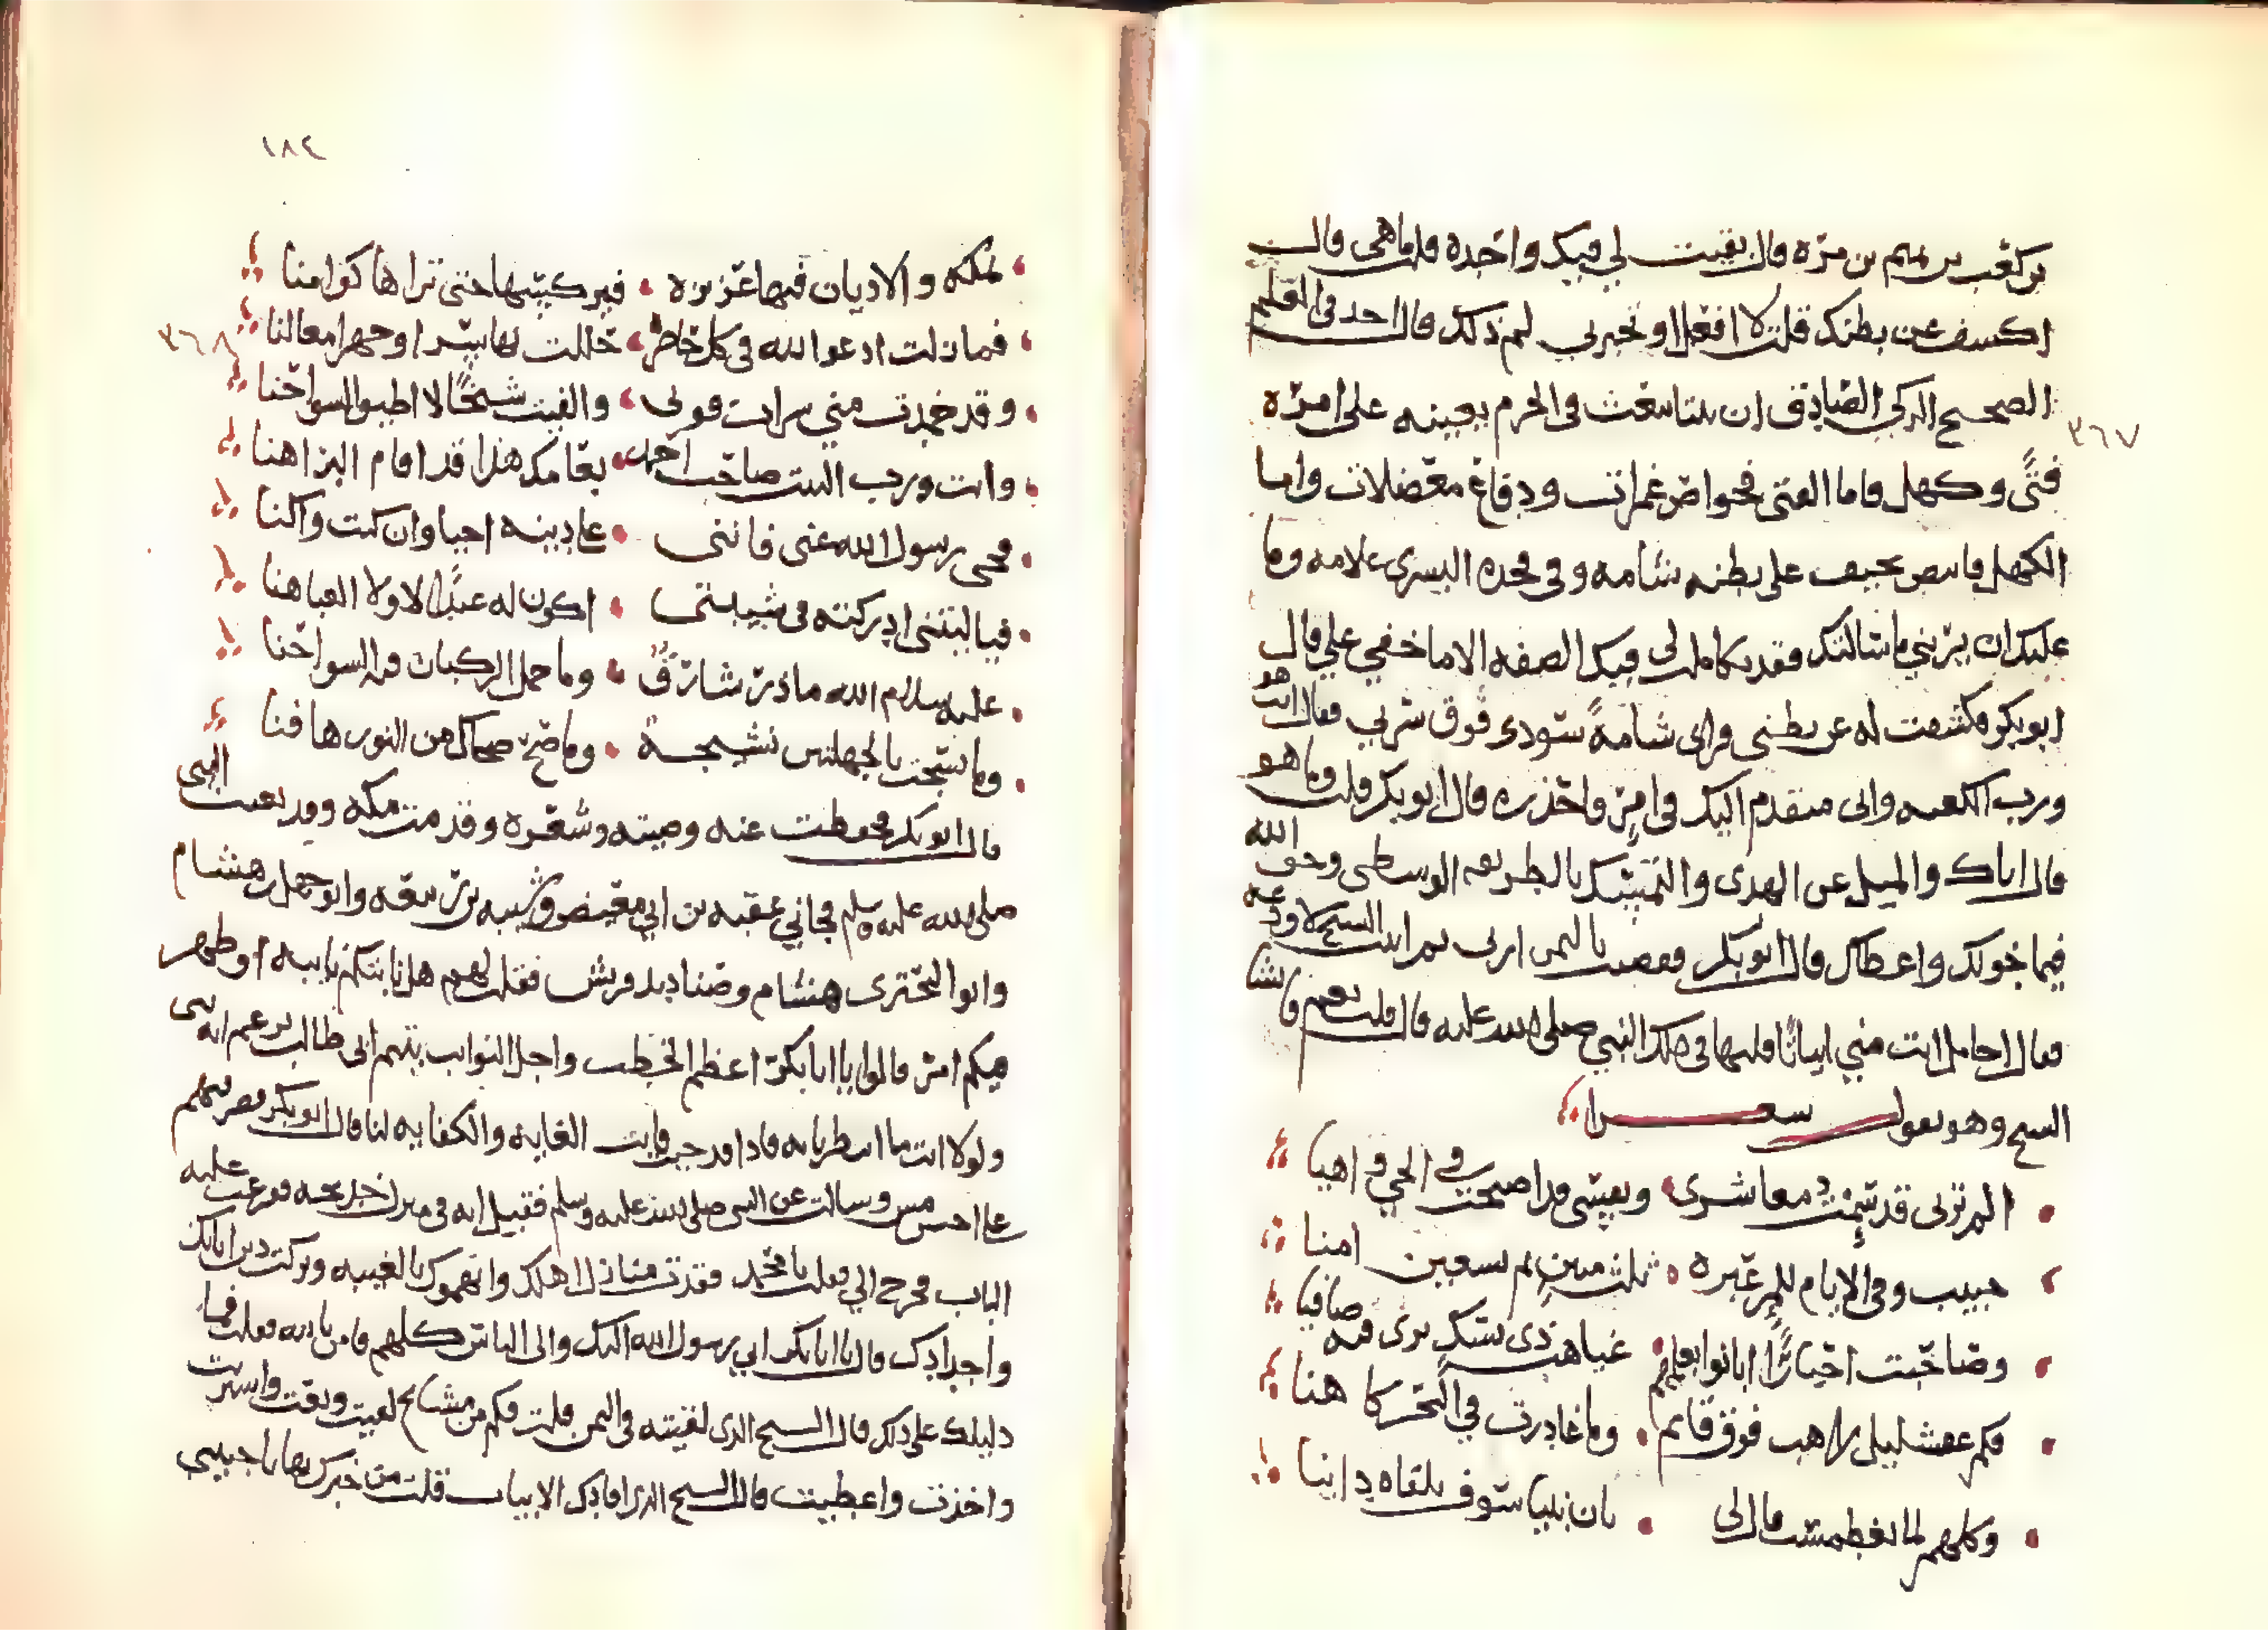 بن كعب بن تميم بن مره قال بقيت لي فيك واحده قلت ما هي قال
اكشف عن بطنك قلت لا افعل او تخبرني لم ذلك قال اجد في العلم
الصحيح الزكي الصادق ان نبيا يبعث في الحرم يعينه على امره
٣٦٧
فتى وكهل فاما الفتى فخواض غمرات ودفاع معضلات واما
الكهل فابيض نحيف على بطنه شامه وفي فخده اليسرى علامه وما
عليك ان تريني ما سالتك فقد تكاملت لي فيك الصفه الا ما خفي علي قال
ابو بكر فكشفت له عن بطني فراى شامة سودى فوق سرتي فقال انت هو
ورب الكعبه واني متقدم اليك في امر فاحذره قال ابو بكر قلت وما هو
قال اياك والميل عن الهدى والتمسك بالطريقه الوسطى وخف الله
فيما خولك واعطاك قال ابو بكر فقضيت باليمن اربي ثم اتيت الشيخ لاودعه
فقال احامل انت مني ابياتا قلتها في ذلك النبي صلى الله عليه قال قلت نعم فانشا
الشيخ وهو يقول شعرا
الم ترني قد سيمت معاشري ونفسي قد اصبحت في الحي واهيا
حبيب وفي الايام للمر عبره ثلث مين ثم تسعين امنا
وصاحبت احبارا ابانوا بعلمهم غياهب ذي سك ترى فيه صافيا
فكم راهب فوق قايم وما غادرت في التحر كاهنا
وكلهم لما تغطمست قال لي بان نبيا سوف تلقاه داينا
١٨٤
بمكه والاديان فيها عزيزه فيركسها حتى تراها كوامنا
فما زلت ادعوا الله في كل حاضر حللت بها سرا وجهرا معالنا
٣٦٨
وقد خمدت مني شرات قوتي والفيت شيخا لا اطيق السواحنا
وانت ورب البيت صاحب احمد بعامك هذا قد اقام البراهنا
فحي رسول الله عني فانني على دينه احيا وان كنت واكنا
فيا ليتني ادركته في شبيبتي اكون له عبدا لا ولا العباهنا
عليه سلام الله ما ذر شارق وما حمل الركبان فيه السواحنا
وما سجت بالجهلتين نشيجة وما صح ضحاك من النور هافنا
قال ابو بكر فحفظت عنه وصيته وشعره وقدمت مكه وقد بعث النبي
صلى الله عليه وسلم فجاني عقبه بن ابي معيض وشيبه بن ربيعه وابو جهل بن هشام
وابوا البختري هشام وصناديد قريش فقلت لهم هل نابتكم نايبه او ظهر
فيكم امر قالوا يا ابا بكر اعظم الخطب واجل النوايب يتيم ابي طالب يزعم انه نبي
ولولا انت ما انتظرنا به فاذا قد جيت فانت الغايه والكفايه لنا قال ابو بكر فصرفتهم
على احسن مس وسالت عن النبي صلى الله عليه وسلم فقيل انه في منزل خديجه فقرعت عليه
الباب فخرج الي فقلت يا محمد فقدت منازل اهلك واتهموك بالغيبه وتركت دين ابايك
واجدادك قال يا ابا بكر اني رسول الله اليك والى الناس كلهم فامن بالله فقلت فما
دليلك على ذلك قال الشيخ الذي لقيته في اليمن قلت فكم من مشايخ لقيت وبعت واشتريت
واخذت واعطيت قال الشيخ الذي افادك الابيات قلت من خبرك بها يا حبيبي